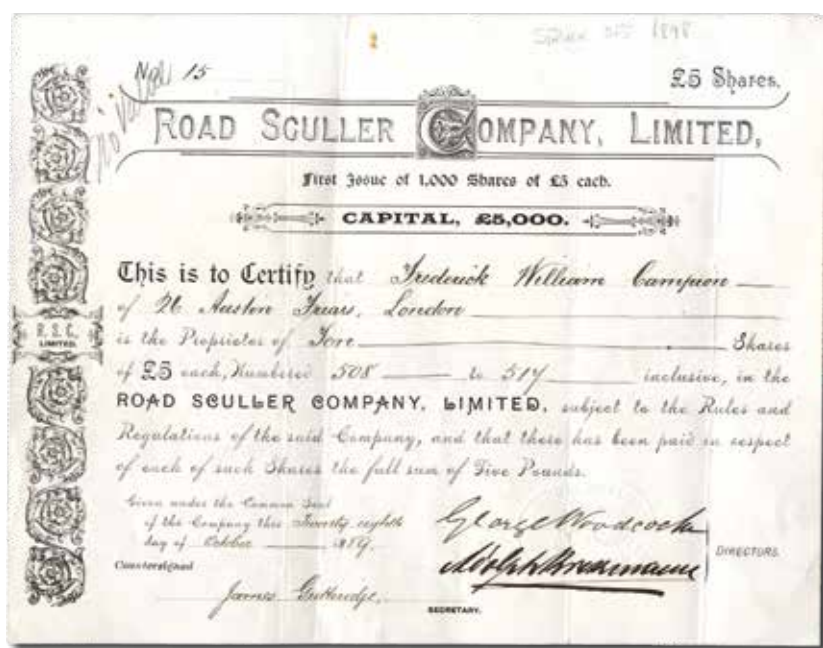 1898
No. 15
£5 Shares.
ROAD SCULLER COMPANY, LIMITED,
First Issue of 1,000 Shares of £5 each.
CAPITAL, £5,000.
This is to Certify that Frederick William Campion
of 26 Austin Friars, London
is the Proprietor of Shares
of £5 each, Numbered 508 to 517 inclusive, in the
R. S. C.,
LIMITED.
ROAD SCULLER COMPANY, LIMITED, subject to the Rules and
Regulations of the said Company, and that there has been paid in respect
of each of such Shares the full sum of Five Pounds.
Given under the Common Seal
of the Company this Twenty eighth
day of October 1889.
George Woodcock
DIRECTORS.
Countersigned
James Gutteridge,
SECRETARY.